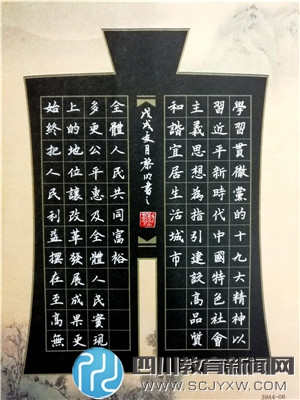 學習貫徹黨的十九大精神以
習近平新時代中國特色社會
主義思想為指引建設高品質
和諧宜居生活城市
始終把人民利益擺在至高無
上的地位讓改革發展成果更
多更公平惠及全體人民實現
全體人民共同富裕
戊戌夏月書之
四川教育新闻网
WWW.SCJYXW.COM
39A4-06